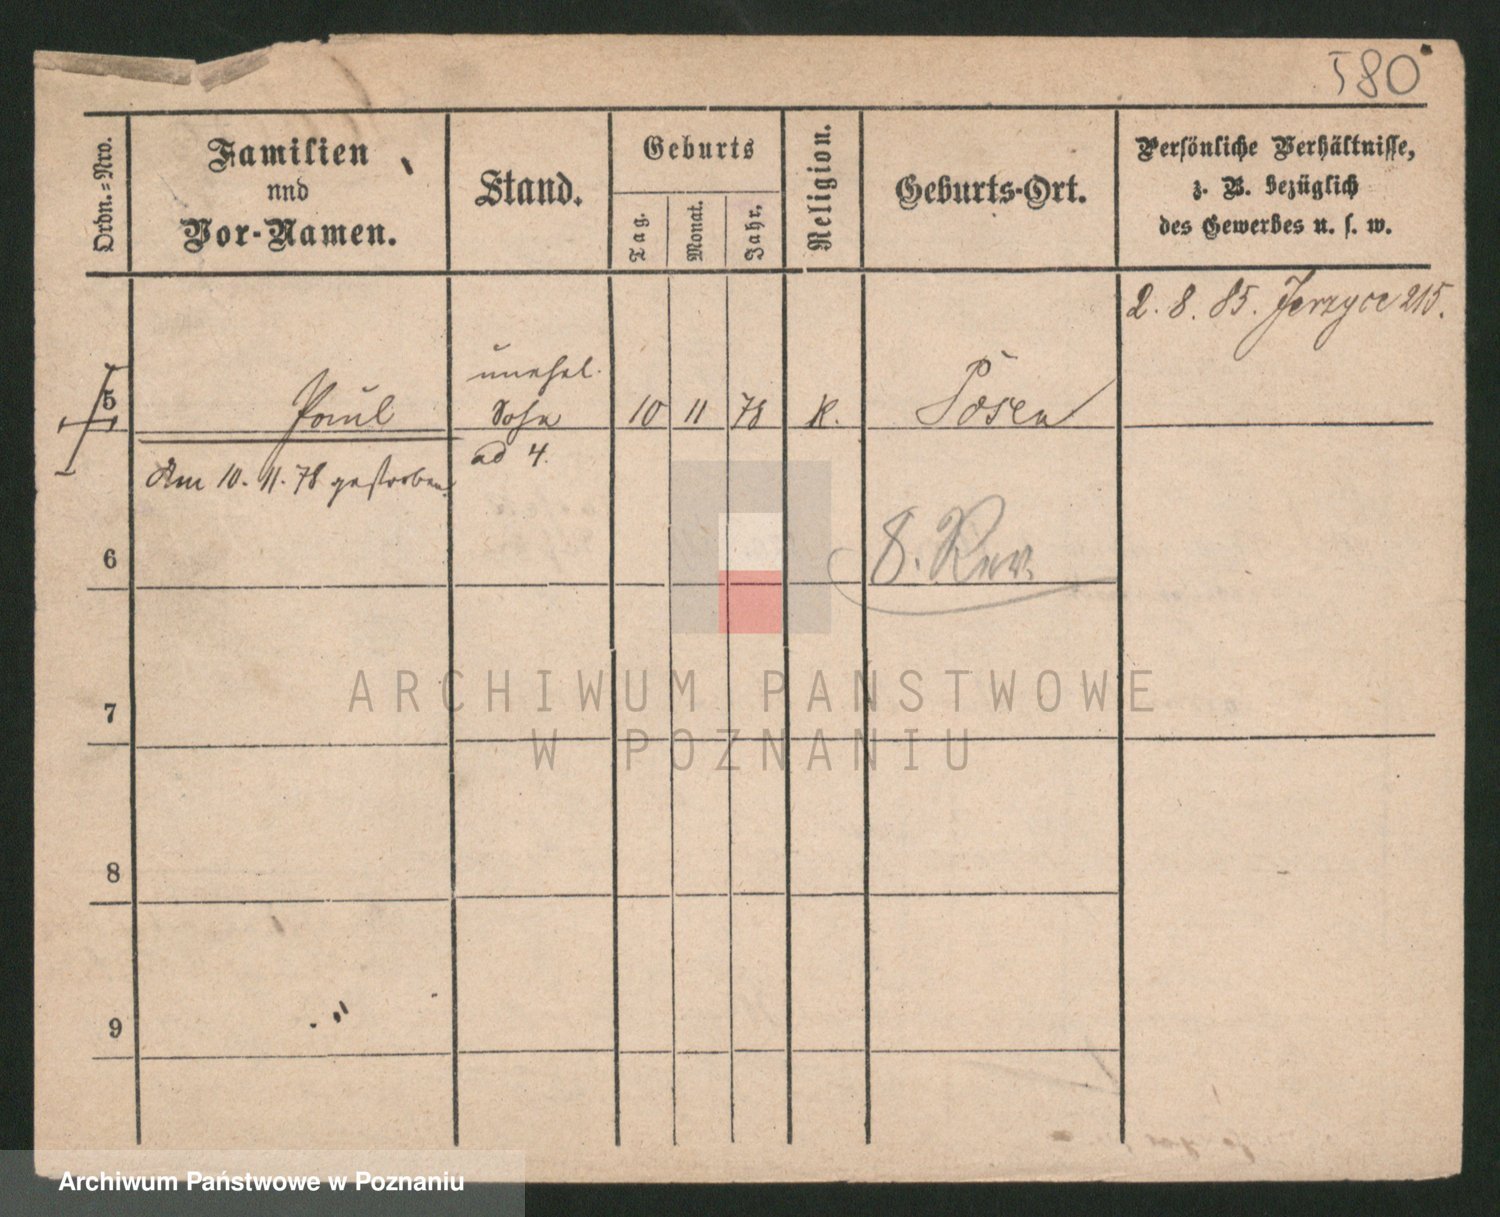 580
Ordn.=Nro.
Familien
nnd
Vor-Namen.
Stand.
Geburts
Tag.
Monat.
Jahr.
Religion.
Geburts-Ort.
Persönliche Verhältnisse,
z. B. bezüglich
des Gewerbes u. s. w.
2. 8. 85. Jerzyce 215.
unehel.
5 Paul Sohn 10 11 78 K. Posen
ad 4.
Am 10. 11. 78 gestorben.
6
8. Rev.
7
8
9
ARCHIWUM PAŃSTWOWE
W POZNANIU
Archiwum Państwowe w Poznaniu